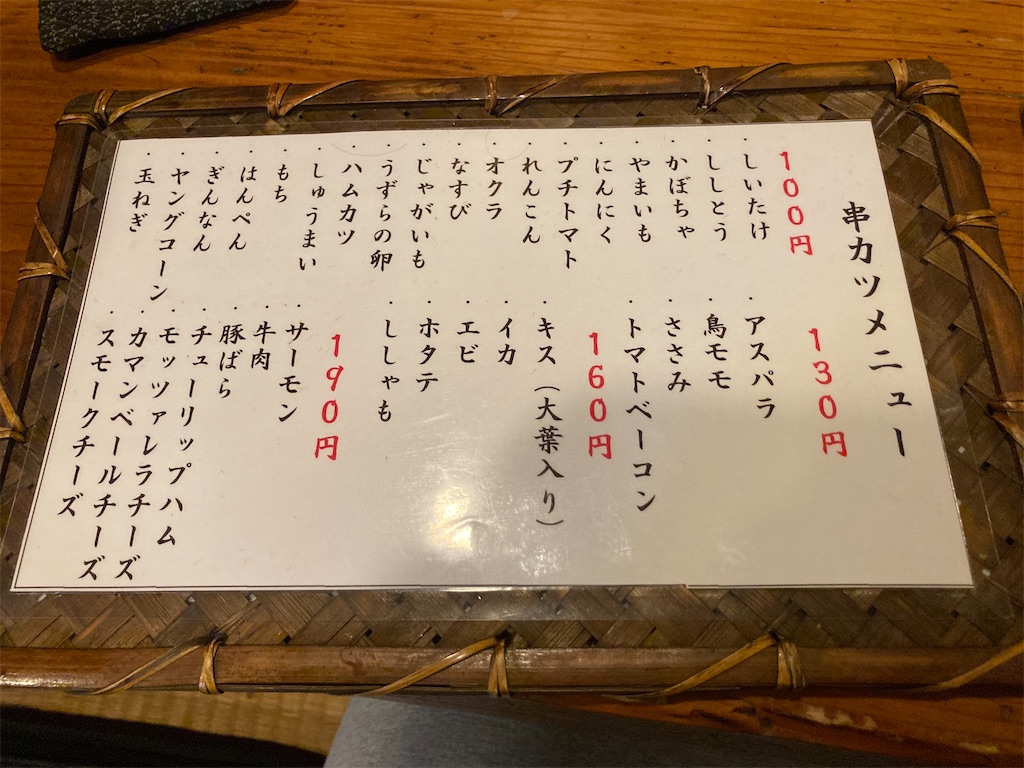 串カツメニュー
100円
・しいたけ
・ししとう
・かぼちゃ
・やまいも
・にんにく
・プチトマト
・れんこん
・オクラ
・なすび
・じゃがいも
・うずらの卵
・ハムカツ
・しゅうまい
・もち
・はんぺん
・ぎんなん
・ヤングコーン
・玉ねぎ
130円
・アスパラ
・鳥モモ
・ささみ
・トマトベーコン
160円
・キス（大葉入り）
・イカ
・エビ
・ホタテ
・ししゃも
190円
・サーモン
・牛肉
・豚ばら
・チューリップハム
・モッツァレラチーズ
・カマンベールチーズ
・スモークチーズ